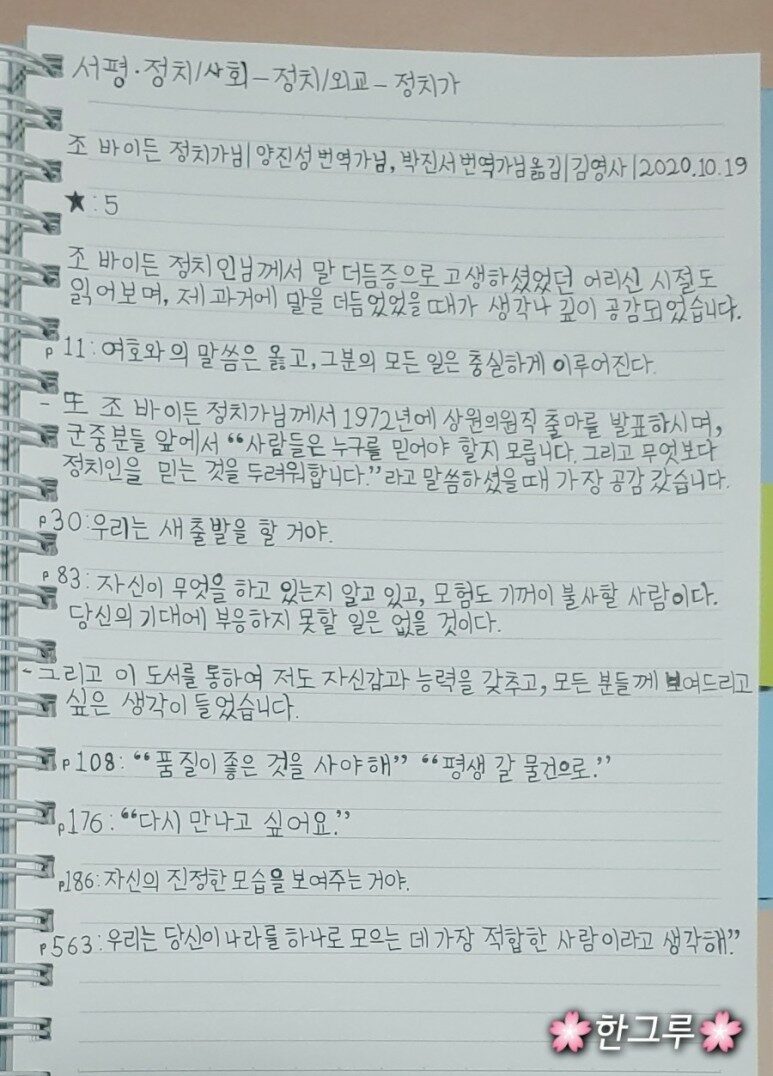 서평·정치/사회-정치/외교-정치가
조 바이든 정치가님|양진성번역가님, 박진서번역가님옮김|김영사|2020.10.19
★:5
조 바이든 정치인님께서 말 더듬증으로 고생하셨었던 어리신 시절도
읽어보며, 제 과거에 말을 더듬었었을때가 생각나 깊이 공감되었습니다.
p11: 여호와의 말씀은 옳고, 그분의 모든 일은 충실하게 이루어진다.
- 또 조 바이든 정치가님께서 1972년에 상원의원직 출마를 발표하시며,
군중분들 앞에서 “사람들은 누구를 믿어야 할지 모릅니다. 그리고 무엇보다
정치인을 믿는 것을 두려워합니다.”라고 말씀하셨을때 가장 공감 갔습니다.
p30:우리는 새출발을 할 거야.
p83: 자신이 무엇을 하고 있는지 알고 있고, 모험도 기꺼이 불사할 사람이다.
당신의 기대에 부응하지 못할 일은 없을 것이다.
-그리고 이 도서를 통하여 저도 자신감과 능력을 갖추고, 모든 분들께 보여드리고
싶은 생각이 들었습니다.
p108: “품질이 좋은 것을 사야해” “평생 갈 물건으로.”
p176:“다시 만나고 싶어요.”
p186:자신의 진정한 모습을 보여주는 거야.
p563:우리는 당신이 나라를 하나로 모으는 데 가장 적합한 사람이라고 생각해.”
🌸한그루🌸